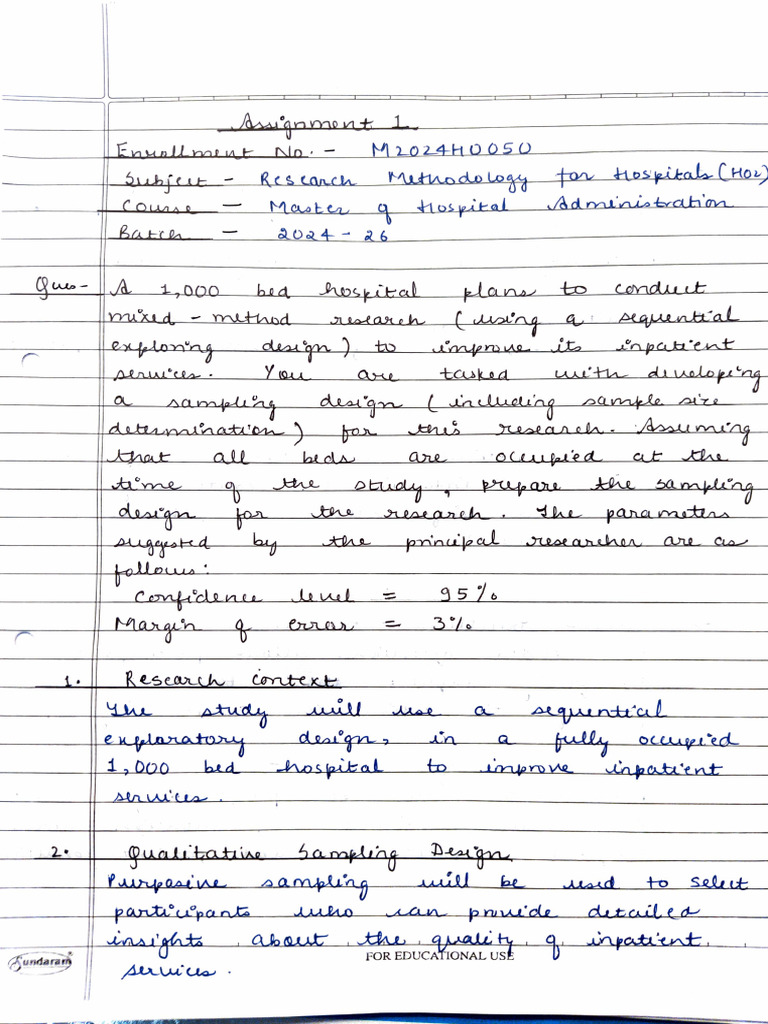 Assignment 1
Enrollment No. - M2024HO050
Subject - Research Methodology for Hospitals (HO2)
Course - Master of Hospital Administration
Batch - 2024 - 26
Ques - A 1,000 bed hospital plans to conduct
mixed-method research (using a sequential
exploring design) to improve its inpatient
services. You are tasked with developing
a sampling design (including sample size
determination) for this research. Assuming
that all beds are occupied at the
time of the study, prepare the sampling
design for the research. The parameters
suggested by the principal researcher are as
follows:
Confidence level = 95%
Margin of error = 3%
1. Research Context
The study will use a sequential
exploratory design, in a fully occupied
1,000 bed hospital to improve inpatient
services.
2. Qualitative Sampling Design
Purposive sampling will be used to select
participants who can provide detailed
insights about the quality of inpatient
services.
Sundaram
FOR EDUCATIONAL USE